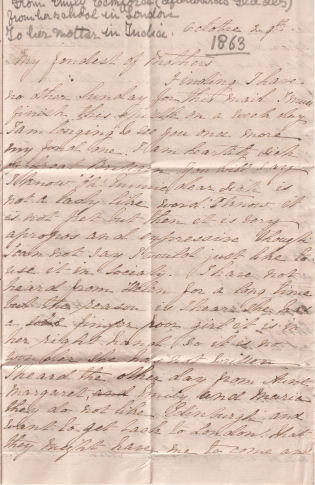 From Emily (afterwards Geddes)
from her school in London
To her mother in India.
October 29th
1863
My fondest of Mothers
Finding I have
no other Sunday for this mail I must
finish this epistle on a week day
I am longing to see you once more
my fond one. I am heartily sick
you will say
I know "Oh Emmie dear that is
not a lady like word" I know it
is not but then it is very
apropos and expressive though
I can not say I would just like to
use it in society. I have not
heard from Helen for a long time
but the reason is I hear she has
a finger poor girl it is
her right hand so it is no
wonder she has not written
I heard the other day from Aunt
Margaret and Emily and Maria
they do not like Edinburgh and
want to get back to London that
they might have me to come and